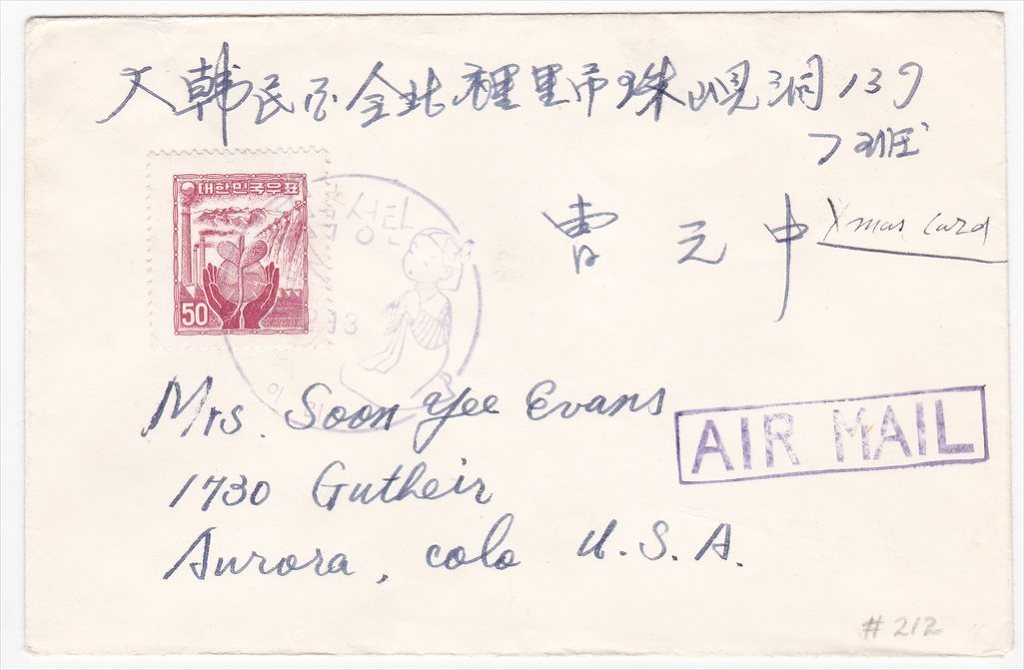 大韓民國全北裡里市珠峴洞139
7班
曹元中
Xmas card
대한민국우표
50
성탄
Mrs. Soon Yee Evans
1730 Gutheir
Aurora, colo U.S.A.
AIR MAIL
# 212